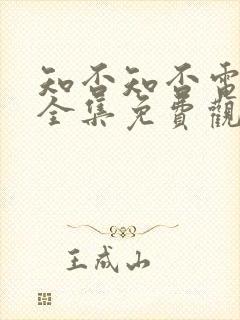 知否知否電
全集免費觀
王成山